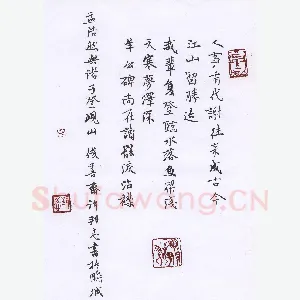 人事有代謝往来成古今
江山留勝迹
我輩復登臨水落魚梁淺
天寒夢澤深
羊公碑尚在讀罷淚沾襟
孟浩然與諸子登峴山 書於鵬城
Shufawang.CN